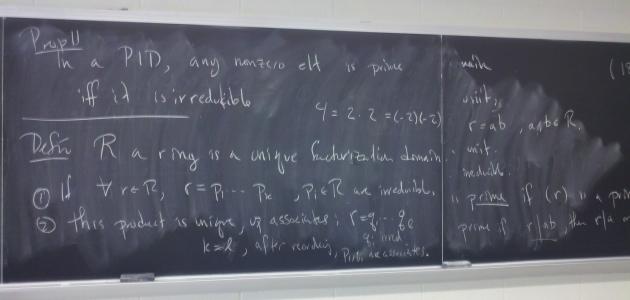 Prop 11
In a PID, any nonzero elt is prime
iff it is irreducible
4 = 2 · 2 = (-2)(-2)
Defn R a ring is a unique factorization domain
① If ∀ r∈R, r = p₁ ··· pₖ, pᵢ∈R are irreducible.
② this product is unique, up associates: r = q₁ ··· qₗ
qᵢ irred
k = l, after reordering, pᵢ, qᵢ are associates.
unit
r = ab, a,b∈R,
unit.
irreducible.
is prime if (r) is a
prime if r|ab then r|a or